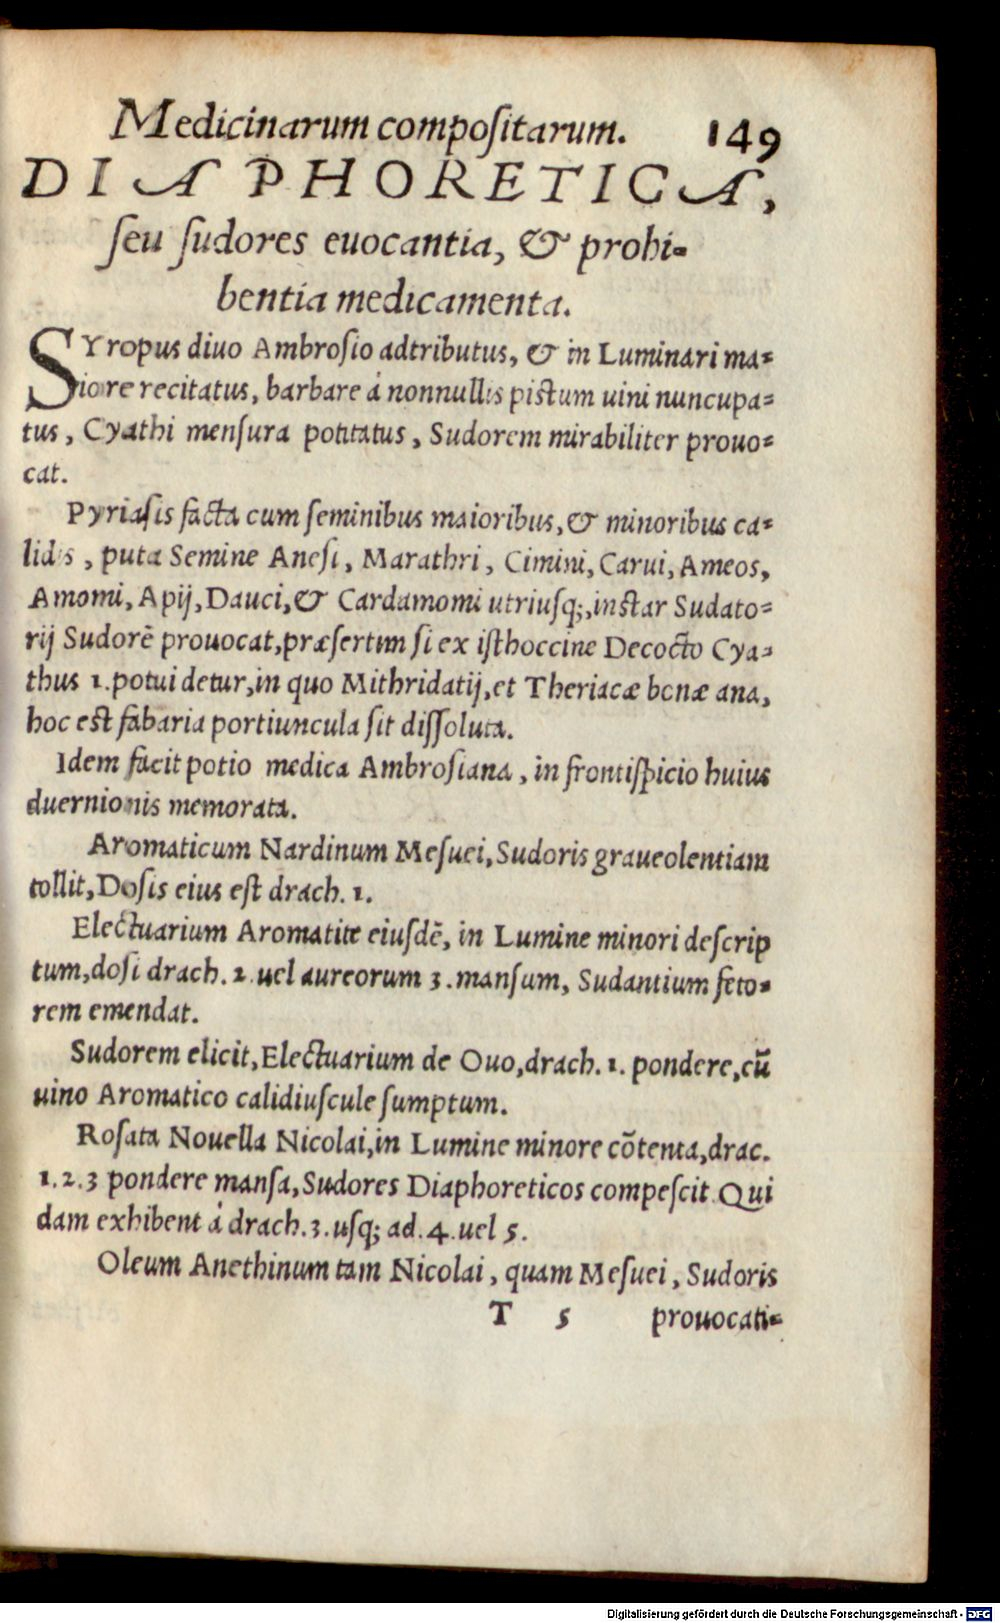 Medicinarum compoſitarum. 149
DIAPHORETICA,
ſeu ſudores euocantia, & prohi-
bentia medicamenta.
SYropus diuo Ambroſio adtributus, & in Luminari ma-
iore recitatus, barbare á nonnullis piſtum uini nuncupa-
tus, Cyathi menſura potitatus, Sudorem mirabiliter prouo-
cat.
Pyriaſis facta cum ſeminibus maioribus, & minoribus ca-
lidis, puta Semine Aneſi, Marathri, Cimini, Carui, Ameos,
Amomi, Apij, Dauci, & Cardamomi utriuſq;, inſtar Sudato-
rij Sudorē prouocat, præſertim ſi ex iſthoccine Decocto Cya-
thus 1. potui detur, in quo Mithridatij, et Theriacæ bonæ ana,
hoc eſt fabaria portiuncula ſit diſſoluta.
Idem facit potio medica Ambroſiana, in frontiſpicio huius
duernionis memorata.
Aromaticum Nardinum Meſuei, Sudoris graueolentiam
tollit, Doſis eius eſt drach. 1.
Electuarium Aromatite eiuſdē, in Lumine minori deſcrip
tum, doſi drach. 2. uel aureorum 3. manſum, Sudantium feto-
rem emendat.
Sudorem elicit, Electuarium de Ouo, drach. 1. pondere, cū
uino Aromatico calidiuſcule ſumptum.
Roſata Nouella Nicolai, in Lumine minore cōtenta, drac.
1. 2. 3 pondere manſa, Sudores Diaphoreticos compeſcit. Qui
dam exhibent á drach. 3. uſq; ad. 4. uel 5.
Oleum Anethinum tam Nicolai, quam Meſuei, Sudoris
T 5 prouocati-
Digitalisierung gefördert durch die Deutsche Forschungsgemeinschaft - DFG